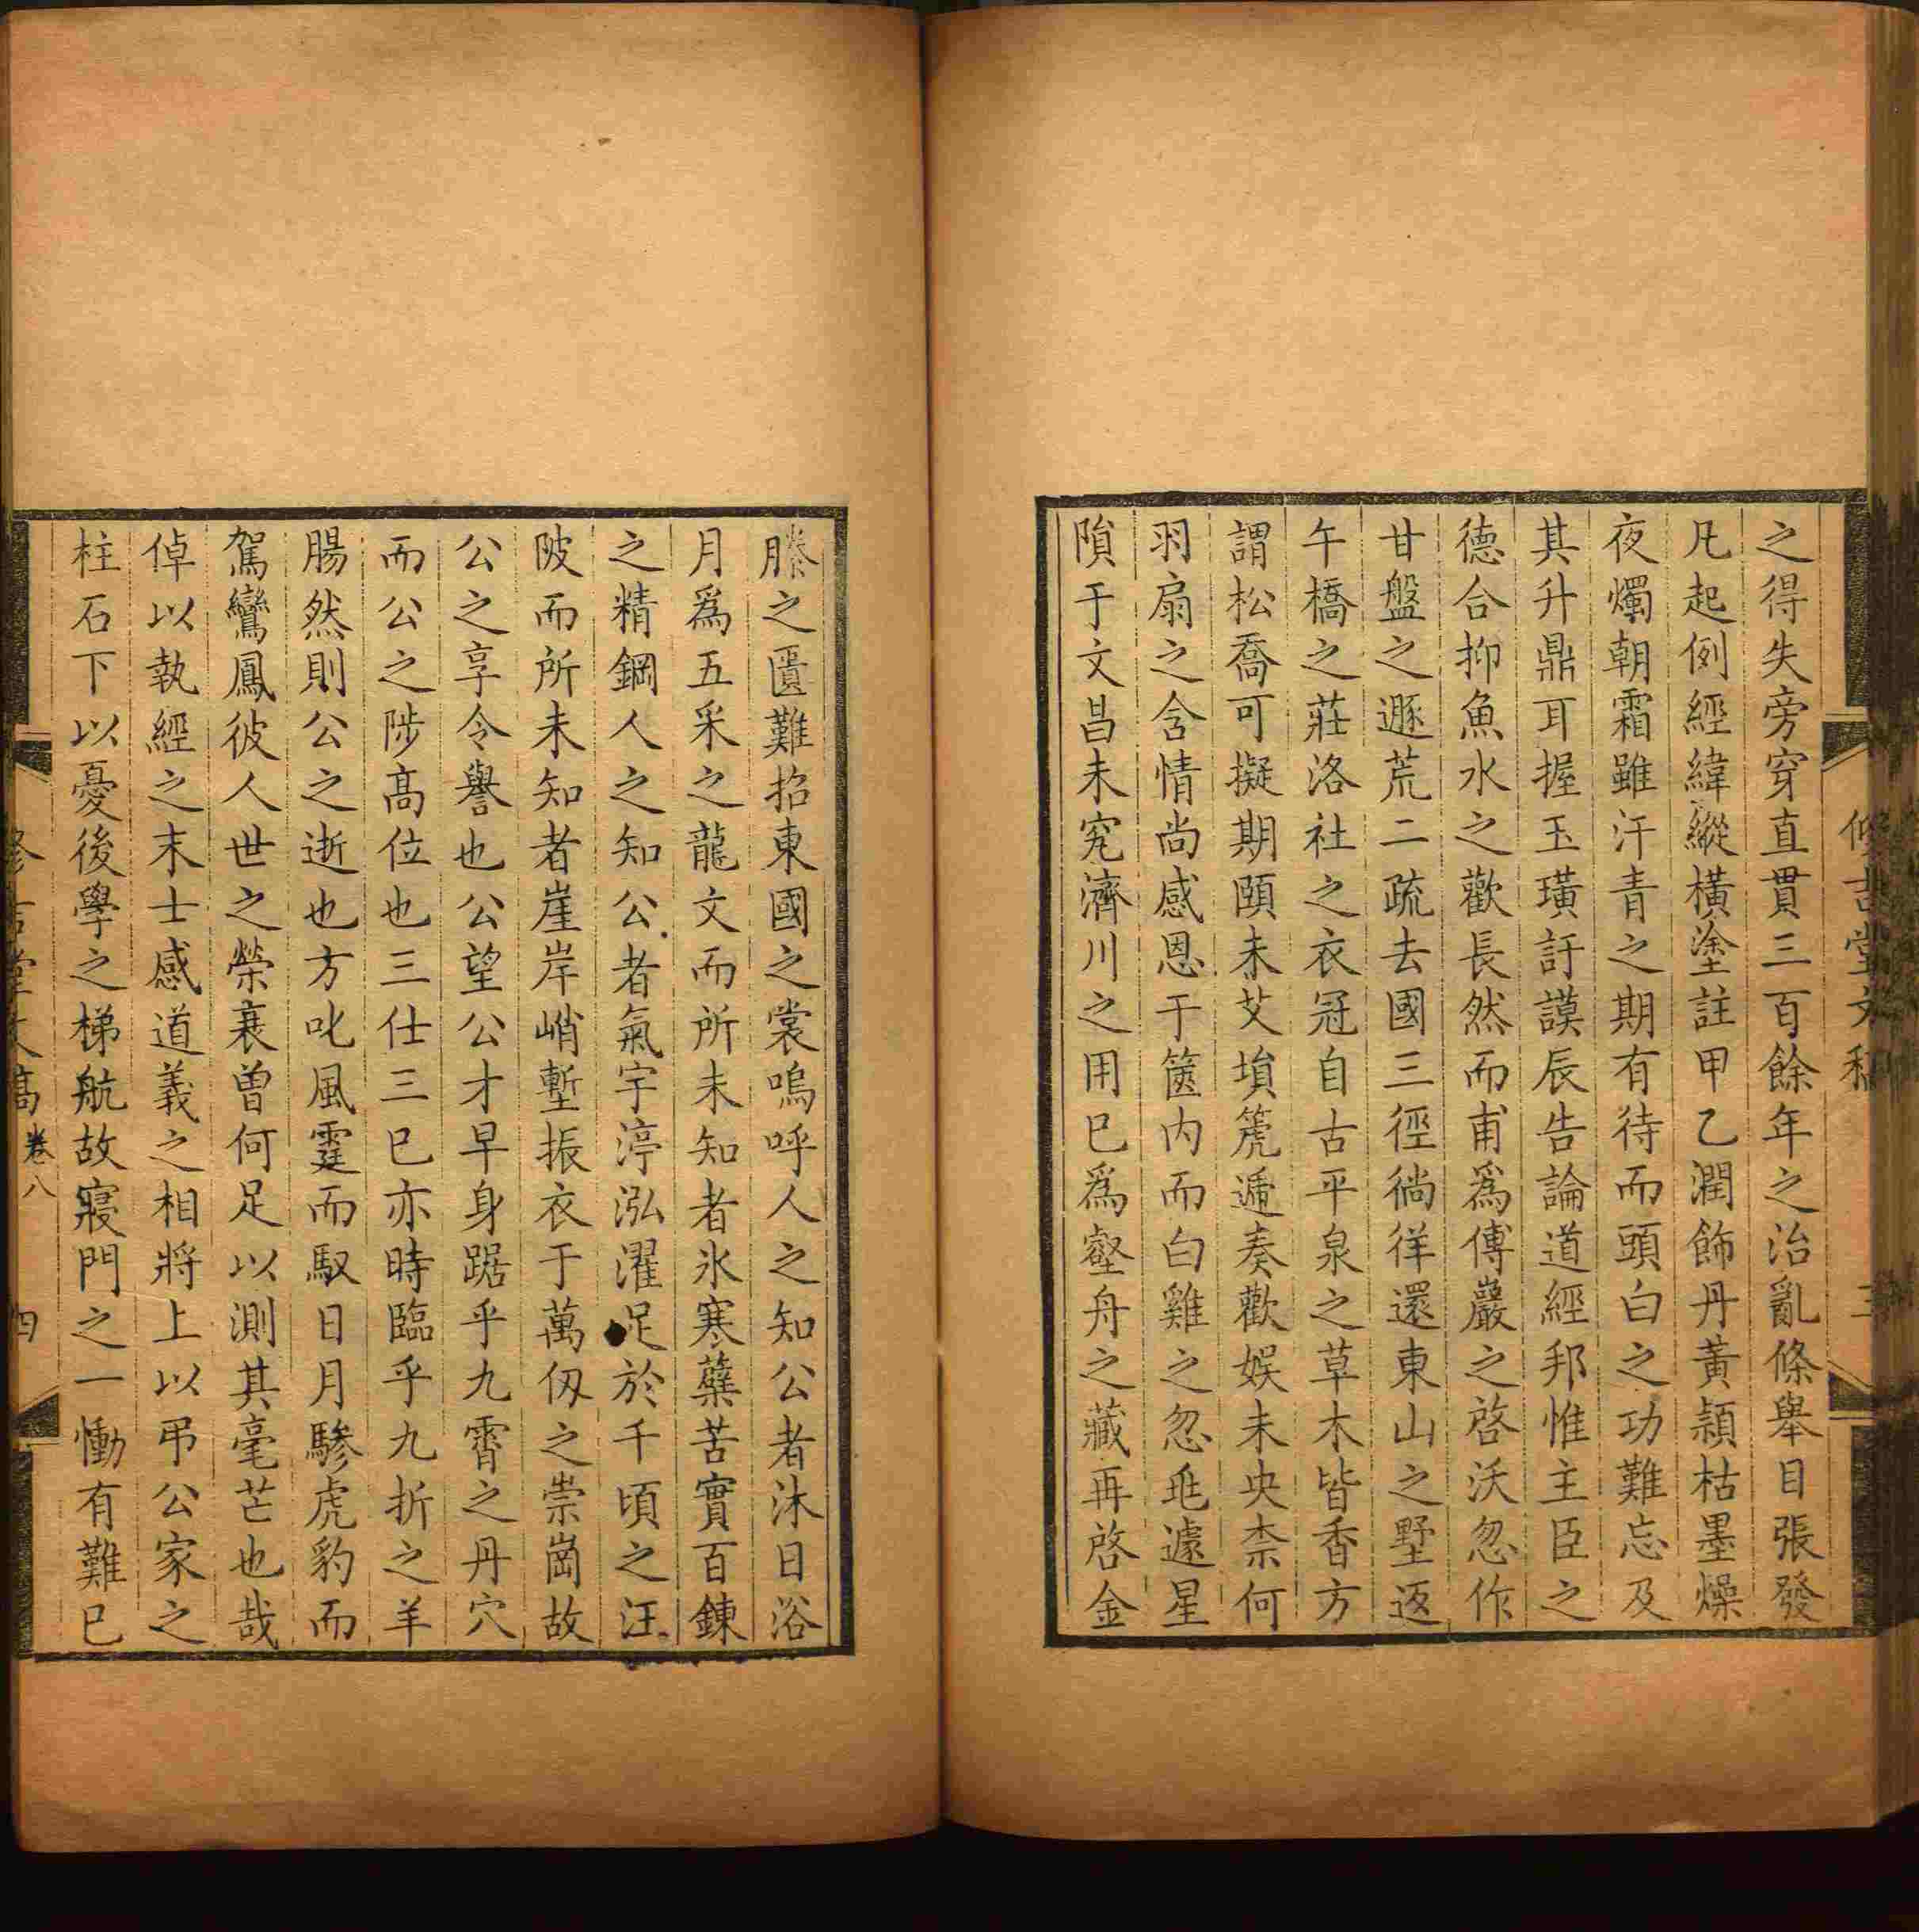 之得失旁穿直貫三百餘年之治亂條舉目張發
凡起例經緯縱橫塗註甲乙潤飾丹黃頴枯墨燥
夜燭朝霜雖汗青之期有待而頭白之功難忘及
其升鼎耳握玉璜訏謨辰告論道經邦惟主臣之
德合抑魚水之歡長然而甫爲傅巖之啓沃忽作
甘盤之遯荒二疏去國三徑徜徉還東山之墅返
午橋之莊洛社之衣冠自古平泉之草木皆香方
謂松喬可擬期頤未艾塤篪遞奏歡娛未央柰何
羽扇之含情尚感恩于篋內而白雞之忽兆遽星
隕于文昌未究濟川之用已爲壑舟之藏再啓金
縢之匱難招東國之裳嗚呼人之知公者沐日浴
月爲五采之龍文而所未知者氷寒蘗苦實百鍊
之精鋼人之知公者氣宇渟泓濯足於千頃之汪
陂而所未知者崖岸峭塹振衣于萬仭之崇崗故
公之享令譽也公望公才早身踞乎九霄之丹穴
而公之陟高位也三仕三已亦時臨乎九折之羊
腸然則公之逝也方叱風霆而馭日月驂虎豹而
駕鸞鳳彼人世之榮衰曾何足以測其毫芒也哉
倬以執經之末士感道義之相將上以弔公家之
柱石下以憂後學之梯航故寢門之一慟有難已
修吉堂文稿 卷八 四